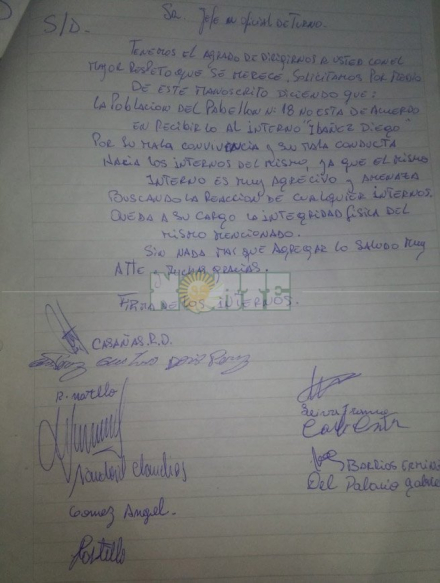 Sr. Jefe oficial de Turno.
S/D.
TENEMOS EL AGRADO DE DIRIGIRNOS A USTED CON EL
MAJOR RESPETO QUE SE MERECE, SOLICITAMOS POR MEDIO
DE ESTE MANOSCRITO DICIENDO QUE:
LA POBLACION DEL PABELLON Nº 18 NO ESTA DE ACUERDO
EN RECIBIRLO AL INTERNO "IBAÑEZ DIEGO"
POR SU MALA CONVIVENCIA Y SU MALA CONDUCTA
HACIA LOS INTERNOS DEL MISMO, YA QUE EL MISMO
INTERNO ES MUY AGRECIVO Y AMENAZA
BUSCANDO LA REACCION DE CUALQUIER INTERNOS.
QUEDA A SU CARGO LA INTEGRIDAD FISICA DEL
MISMO MENCIONADO.
SIN NADA MAS QUE AGREGAR LO SALUDO MUY
ATTE. Mucha gracias.
FIRMA DE LOS INTERNOS.
CABAÑAS. R.D.
Claudios
BARRIOS
Del Palacio
Gomez Angel.
Castillo